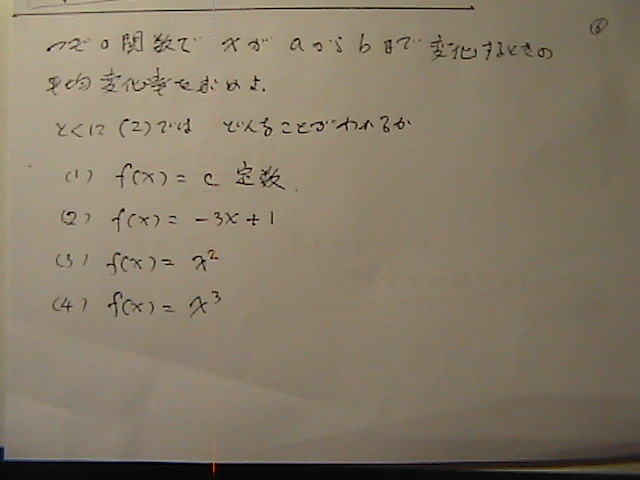 ⑥
つぎの関数で xが aから bまで 変化するときの
平均変化率を求めよ.
とくに(2)では どんなことがいわれるか
(1) f(x) = c 定数.
(2) f(x) = -3x+1
(3) f(x) = x²
(4) f(x) = x³